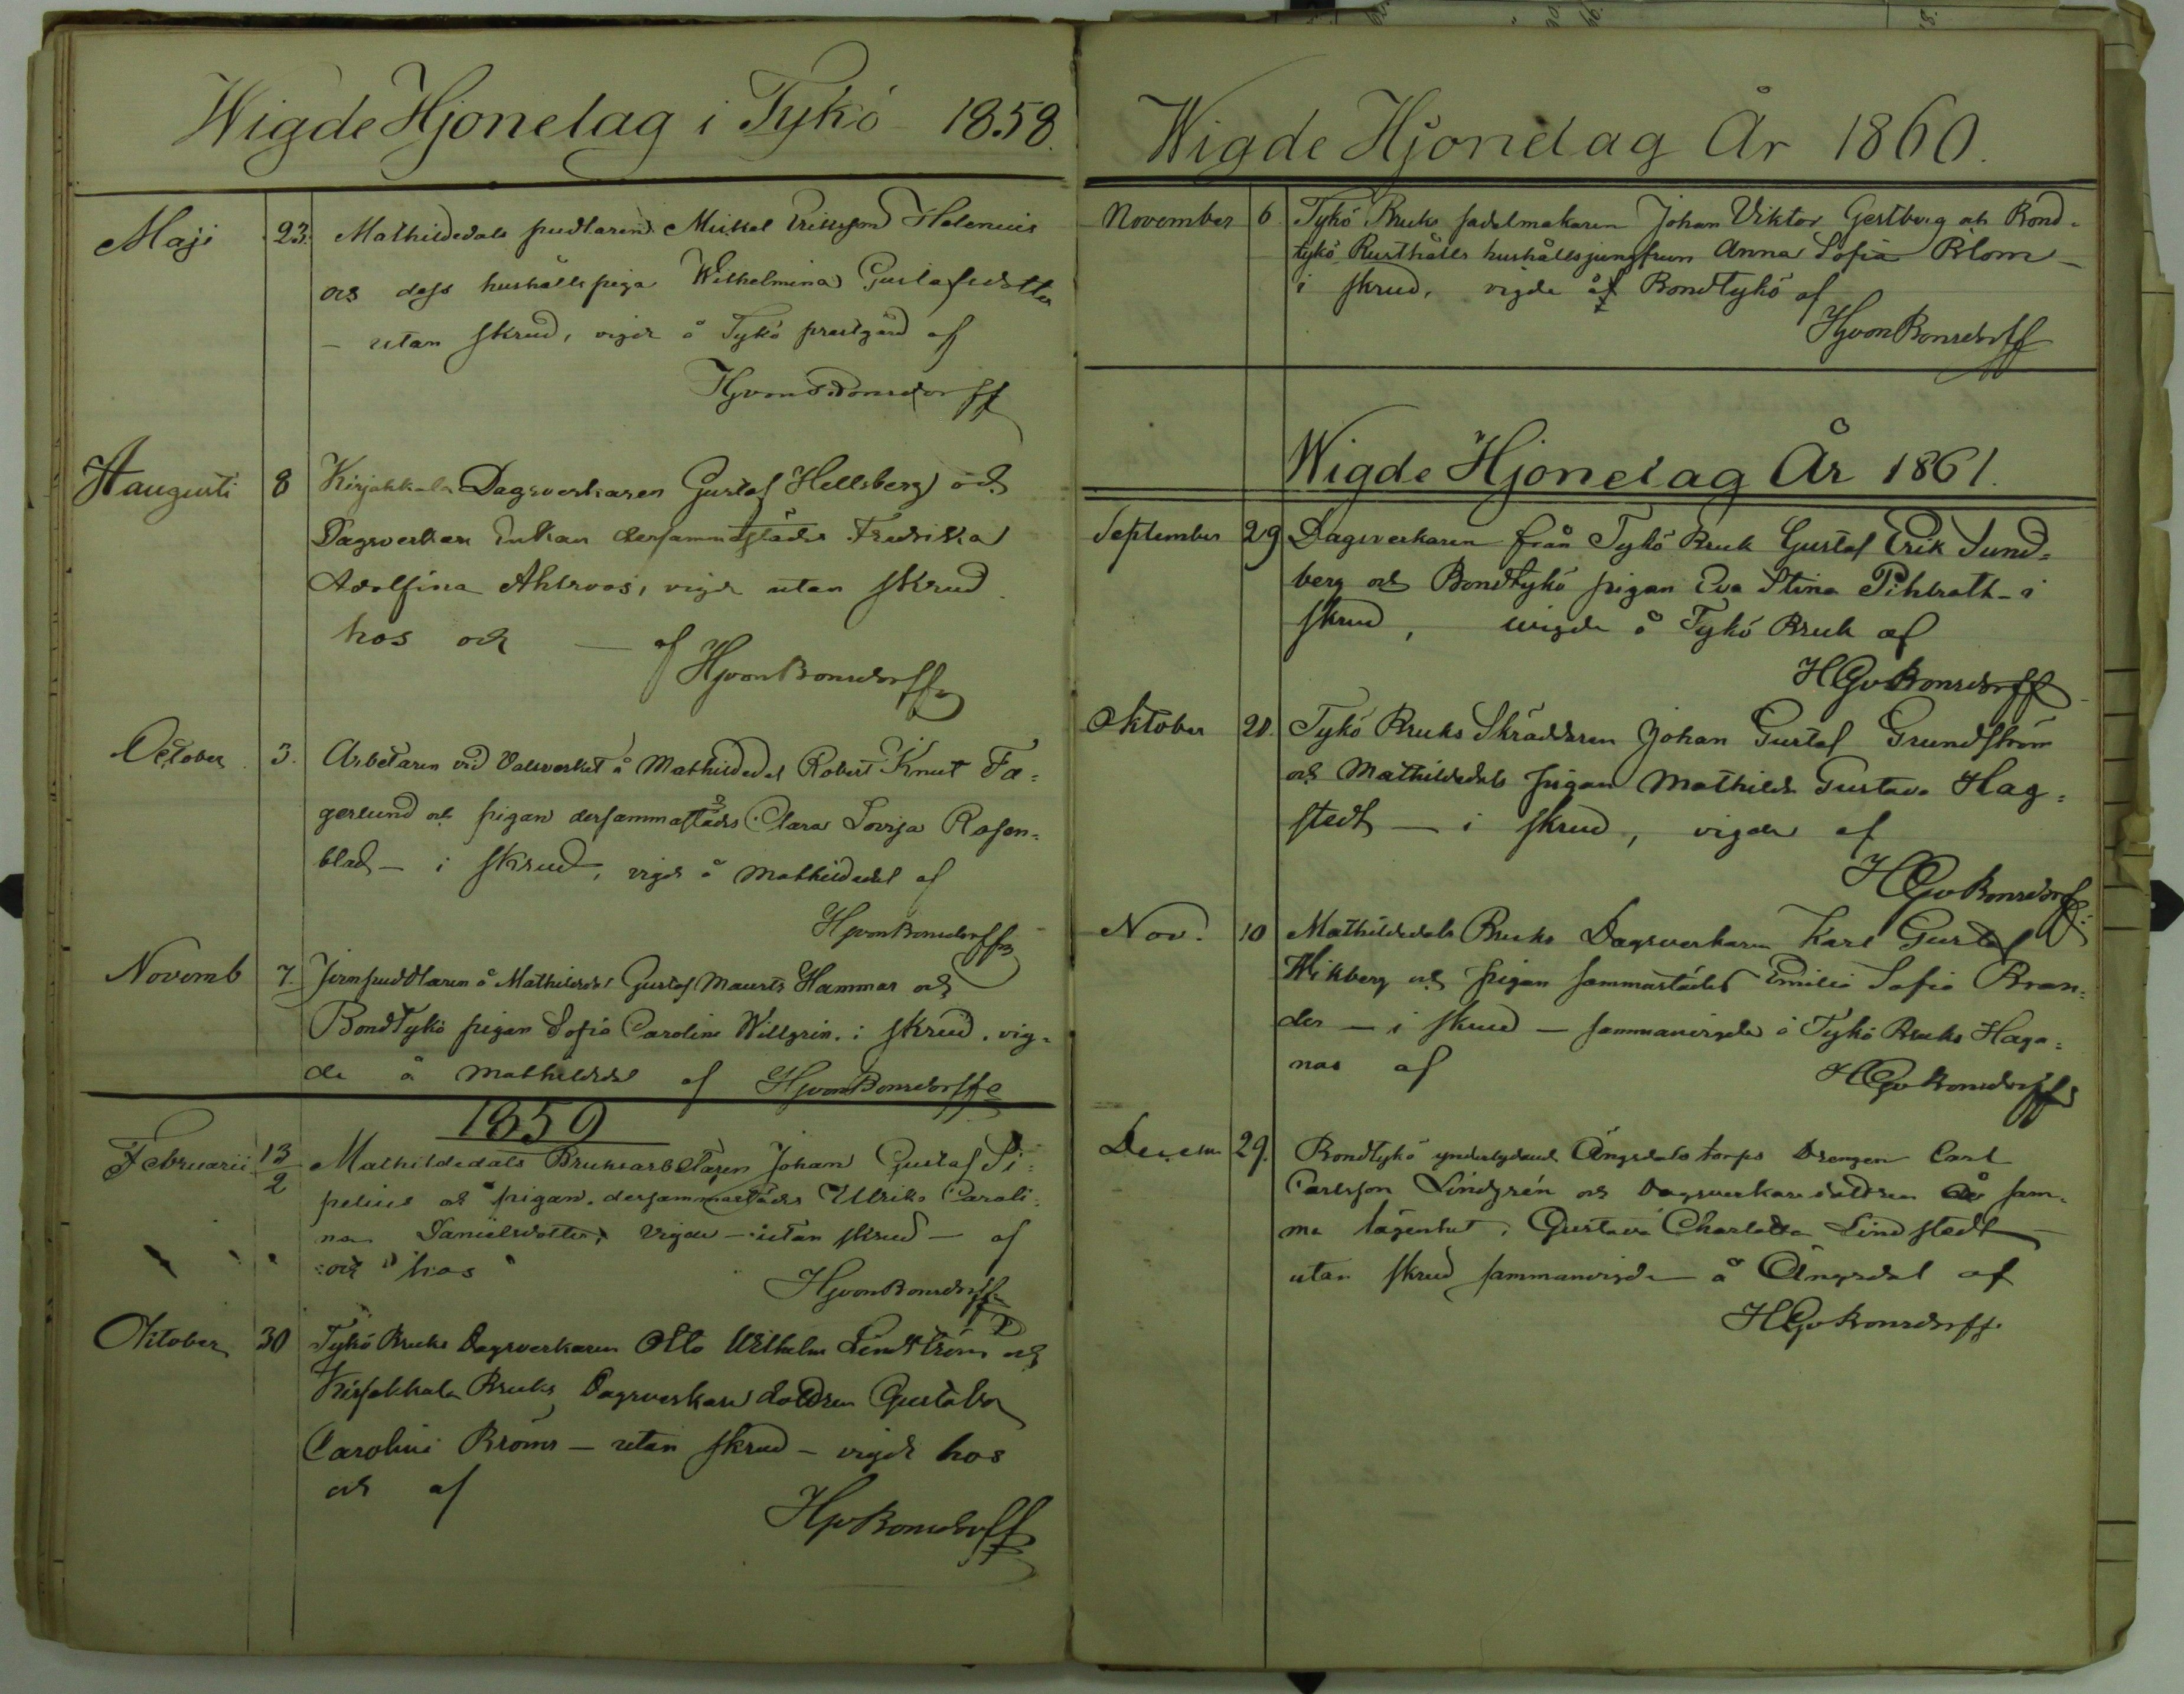 Wigde Hjonelag i Tykö 1858.
Maji 23. Mathildedals pudlaren Mickel Ericsson Helenius
och dess hushålls piga Wilhelmina Gustafsdotter
– utan skrud, vigde å Tykö prestgård af
HGvonBonsdorff
Augusti 8 Kirjakkala Dagsverkaren Gustaf Hellsberg och
Dagsverkare Enkan dersammastädes Fredrika
Adolfina Ahlroos, vigde utan skrud
hos och — af HGvonBonsdorff
October 3. Arbetaren vid Valsverket å Mathildedal Robert Knut Fa=
gerlund och pigan dersammastädes Clara Lovisa Rosen=
blad – i skrud, vigde å Mathildedal af
HGvonBonsdorff
Novemb 7. Jernpuddlaren å Mathildedal Gustaf Maurits Hammar och
Bondtykö pigan Sofia Carolina Willgrén. i skrud. vig=
de å Mathildedal af HGvonBonsdorff
1859
Februarii 13/2 Mathildedals Bruksarbetaren Johan Gustaf Si=
pelius och pigan dersammastädes Ulrika Caroli=
na Danielsdotter, vigde – utan skrud – af
och hos
HGvonBonsdorff
Oktober 30 Tykö Bruks Dagsverkaren Otto Wilhelm Lindström och
Kirjakkala Bruks Dagsverkare dottren Gustafva
Carolina Broms – utan skrud – vigde hos
och af
HGvBonsdorff
Wigde Hjonelag År 1860.
November 6 Tykö Bruks sadelmakaren Johan Viktor Gestberg och Bond=
tykö Rusthålls hushållsjungfrun Anna Sofia Blom –
i skrud, vigde å Bondtykö af
HGvonBonsdorff
Wigde Hjonelag År 1861.
September 29 Dagsverkaren från Tykö Bruk Gustaf Erik Sund=
berg och Bondtykö pigan Eva Stina Pihlrath – i
skrud, wigde å Tykö Bruk af
HGvBonsdorff
Oktober 20. Tykö Bruks Skräddaren Johan Gustaf Grundström
och Mathildedals pigan Mathilda Gustava Hag=
stedt — i skrud, vigde af
HGvBonsdorff
Nov. 10 Mathildedals Bruks Dagsverkaren Karl Gustaf
Wikberg och pigan sammastädes Emilia Sofia Bran=
der – i skrud – sammanvigde å Tykö Bruks Haga=
nas af HGvBonsdorff
Decem 29. Bondtykö underlydande Ängsdals torps Drengen Carl
Carlsson Lindgrén och Dagsverkare dottren å sam=
ma lägenhet, Gustava Charlotta Lindstedt
utan skrud sammanvigde å Ängsdal af
HGvBonsdorff